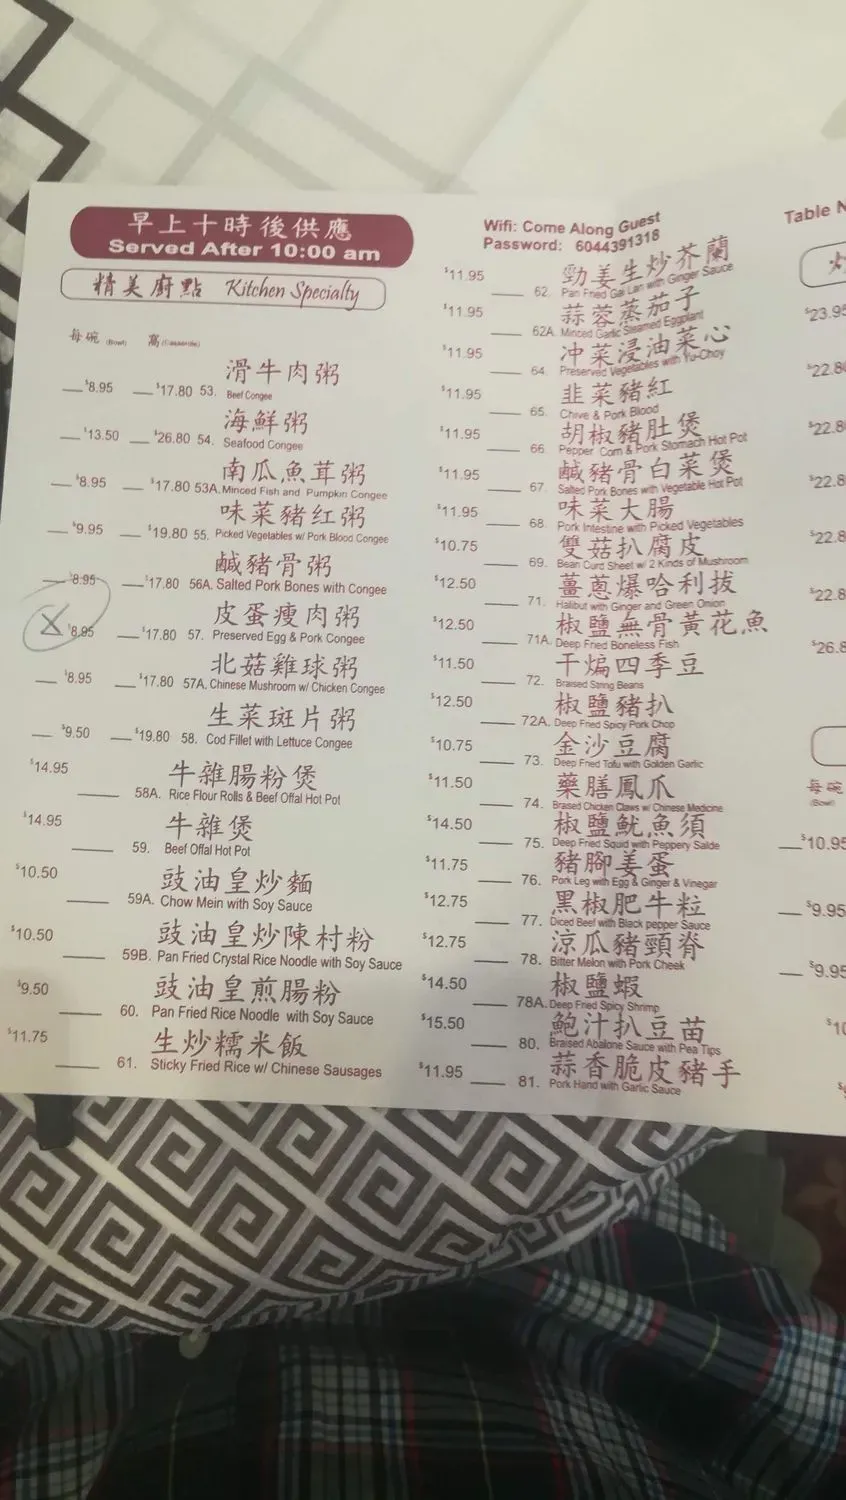 早上十時後供應
Served After 10:00 am
精美廚點 Kitchen Specialty
每碗 (Bowl) 窩
滑牛肉粥
$8.95 $17.80 53. Beef Congee
海鮮粥
$13.50 $26.80 54. Seafood Congee
南瓜魚茸粥
$8.95 $17.80 53A. Minced Fish and Pumpkin Congee
味菜豬红粥
$9.95 $19.80 55. Picked Vegetables w/ Pork Blood Congee
鹹豬骨粥
$8.95 $17.80 56A. Salted Pork Bones with Congee
皮蛋瘦肉粥
$8.95 $17.80 57. Preserved Egg & Pork Congee
北菇雞球粥
$8.95 $17.80 57A. Chinese Mushroom w/ Chicken Congee
生菜斑片粥
$9.50 $19.80 58. Cod Fillet with Lettuce Congee
$14.95 牛雜腸粉煲
58A. Rice Flour Rolls & Beef Offal Hot Pot
$14.95 牛雜煲
59. Beef Offal Hot Pot
$10.50 豉油皇炒麵
59A. Chow Mein with Soy Sauce
$10.50 豉油皇炒陳村粉
59B. Pan Fried Crystal Rice Noodle with Soy Sauce
$9.50 豉油皇煎腸粉
60. Pan Fried Rice Noodle with Soy Sauce
$11.75 生炒糯米飯
61. Sticky Fried Rice w/ Chinese Sausages
Wifi: Come Along Guest
Password: 6044391318
$11.95 勁姜生炒芥蘭
62. Pan Fried Gai Lan with Ginger Sauce
$11.95 蒜蓉蒸茄子
62A. Minced Garlic Steamed Eggplant
$11.95 冲菜浸油菜心
64. Preserved Vegetables with Yu-Choy
$11.95 韭菜豬紅
65. Chive & Pork Blood
$11.95 胡椒豬肚煲
66. Pepper Corn & Pork Stomach Hot Pot
$11.95 鹹豬骨白菜煲
67. Salted Pork Bones with Vegetable Hot Pot
$11.95 味菜大腸
68. Pork Intestine with Picked Vegetables
$10.75 雙菇扒腐皮
69. Bean Curd Sheet w/ 2 Kinds of Mushroom
$12.50 薑蔥爆哈利拔
71. Halibut with Ginger and Green Onion
$12.50 椒鹽無骨黃花魚
71A. Deep Fried Boneless Fish
$11.50 干煸四季豆
72. Braised String Beans
$12.50 椒鹽豬扒
72A. Deep Fried Spicy Pork Chop
$10.75 金沙豆腐
73. Deep Fried Tofu with Golden Garlic
$11.50 藥膳鳳爪
74. Braised Chicken Claws w/ Chinese Medicine
$14.50 椒鹽魷魚須
75. Deep Fried Squid with Peppery Salde
$11.75 豬腳姜蛋
76. Pork Leg with Egg & Ginger & Vinegar
$12.75 黑椒肥牛粒
77. Diced Beef with Black pepper Sauce
$12.75 涼瓜豬頸脊
78. Bitter Melon with Pork Cheek
$14.50 椒鹽蝦
78A. Deep Fried Spicy Shrimp
$15.50 鮑汁扒豆苗
80. Braised Abalone Sauce with Pea Tips
$11.95 蒜香脆皮豬手
81. Pork Hand with Garlic Sauce
Table N
$23.95
$22.8
$22.8
$22.8
$22.8
$22.8
$26.8
每碗
(Bowl)
$10.95
$9.95
$9.95
$10